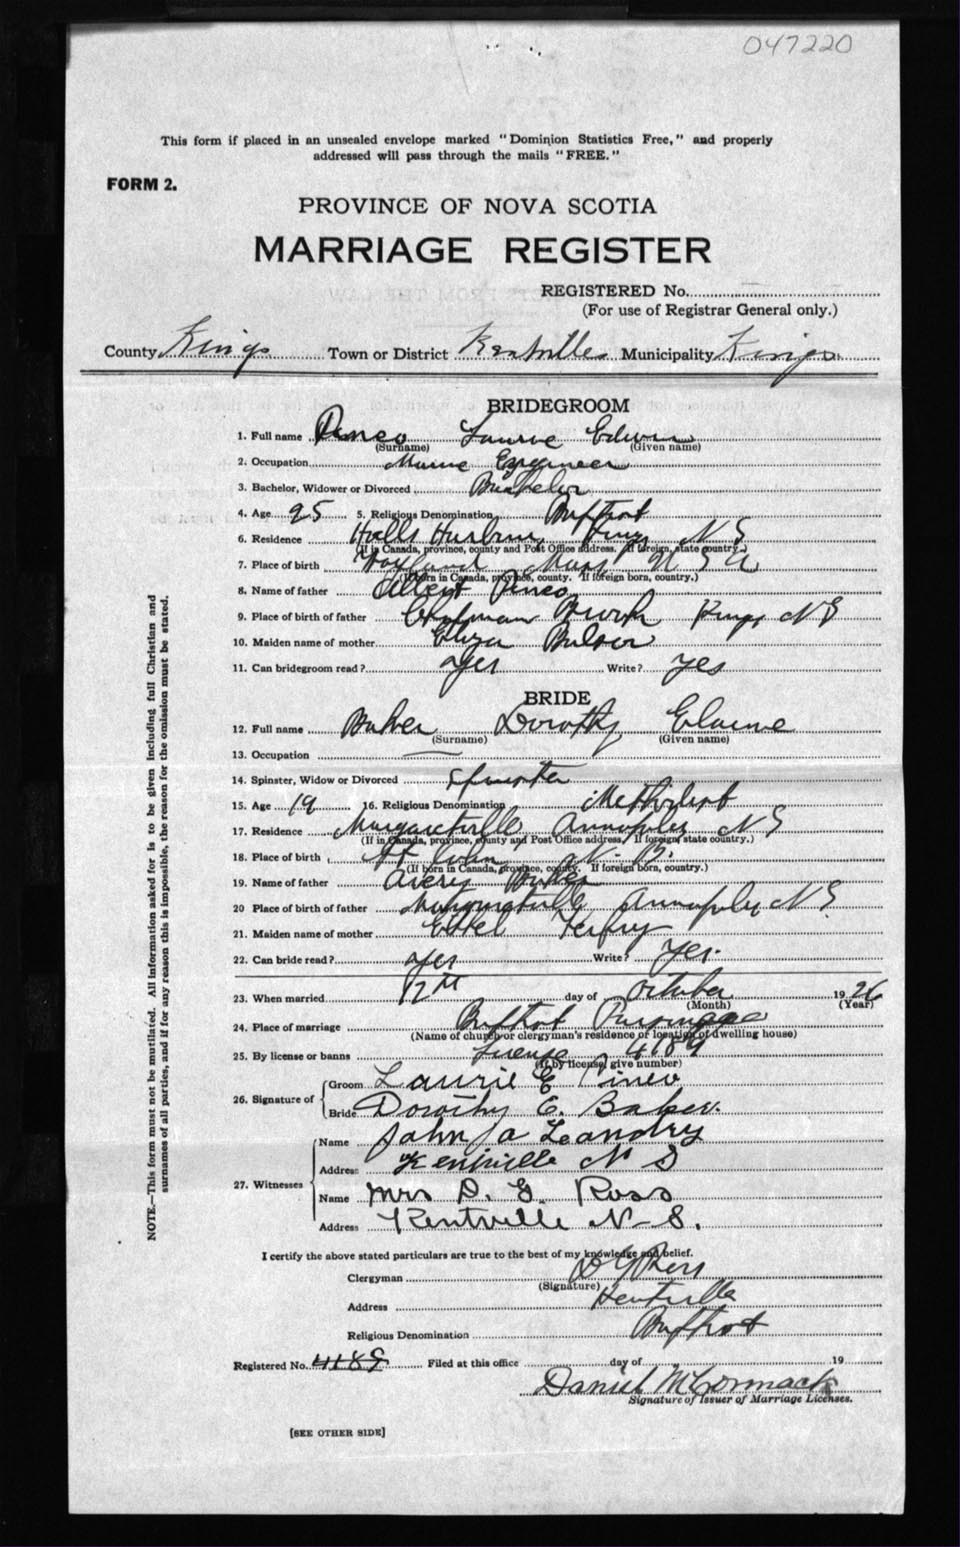 047220
This form if placed in an unsealed envelope marked "Dominion Statistics Free," and properly
addressed will pass through the mails "FREE."
FORM 2.
PROVINCE OF NOVA SCOTIA
MARRIAGE REGISTER
REGISTERED No.
(For use of Registrar General only.)
County Kings Town or District Kentville Municipality Kings
BRIDEGROOM
1. Full name Pineo Laurie Edwin
(Surname) (Given name)
2. Occupation Marine Engineer
3. Bachelor, Widower or Divorced Bachelor
4. Age 25 5. Religious Denomination Baptist
6. Residence Halls Harbour Kings N S
(If in Canada, province, county and Post Office address. If foreign, state country.)
7. Place of birth Mass U S A
(If born in Canada, province, county. If foreign born, country.)
8. Name of father Albert Pineo
9. Place of birth of father Chipman Brook Kings N S
10. Maiden name of mother Eliza
11. Can bridegroom read? Yes Write? Yes
BRIDE
12. Full name Baker Dorothy Elaine
(Surname) (Given name)
13. Occupation
14. Spinster, Widow or Divorced Spinster
15. Age 19 16. Religious Denomination Methodist
17. Residence Margaretville Annapolis N S
(If in Canada, province, county and Post Office address. If foreign, state country.)
18. Place of birth St John N. B.
(If born in Canada, province, county. If foreign born, country.)
19. Name of father Avery Baker
20 Place of birth of father Margaretville Annapolis N S
21. Maiden name of mother Ethel
22. Can bride read? Yes Write? Yes.
23. When married 12th day of October 1926
(Month) (Year)
24. Place of marriage Baptist Parsonage
(Name of church or clergyman's residence or location of dwelling house)
25. By license or banns License 4189
(If by license, give number)
26. Signature of Groom Laurie E Pineo
Bride Dorothy E. Baker.
27. Witnesses Name John Leandry
Address Kentville N S
Name Mrs D. G. Ross
Address Kentville N-S.
I certify the above stated particulars are true to the best of my knowledge and belief.
Clergyman D G Ross
(Signature)
Address Kentville
Religious Denomination Baptist
Registered No. 4189 Filed at this office day of 19
Daniel McCormack
Signature of Issuer of Marriage Licenses.
[SEE OTHER SIDE]
NOTE.—This form must not be mutilated. All information asked for is to be given including full Christian and
surnames of all parties, and if for any reason this is impossible, the reason for the omission must be stated.